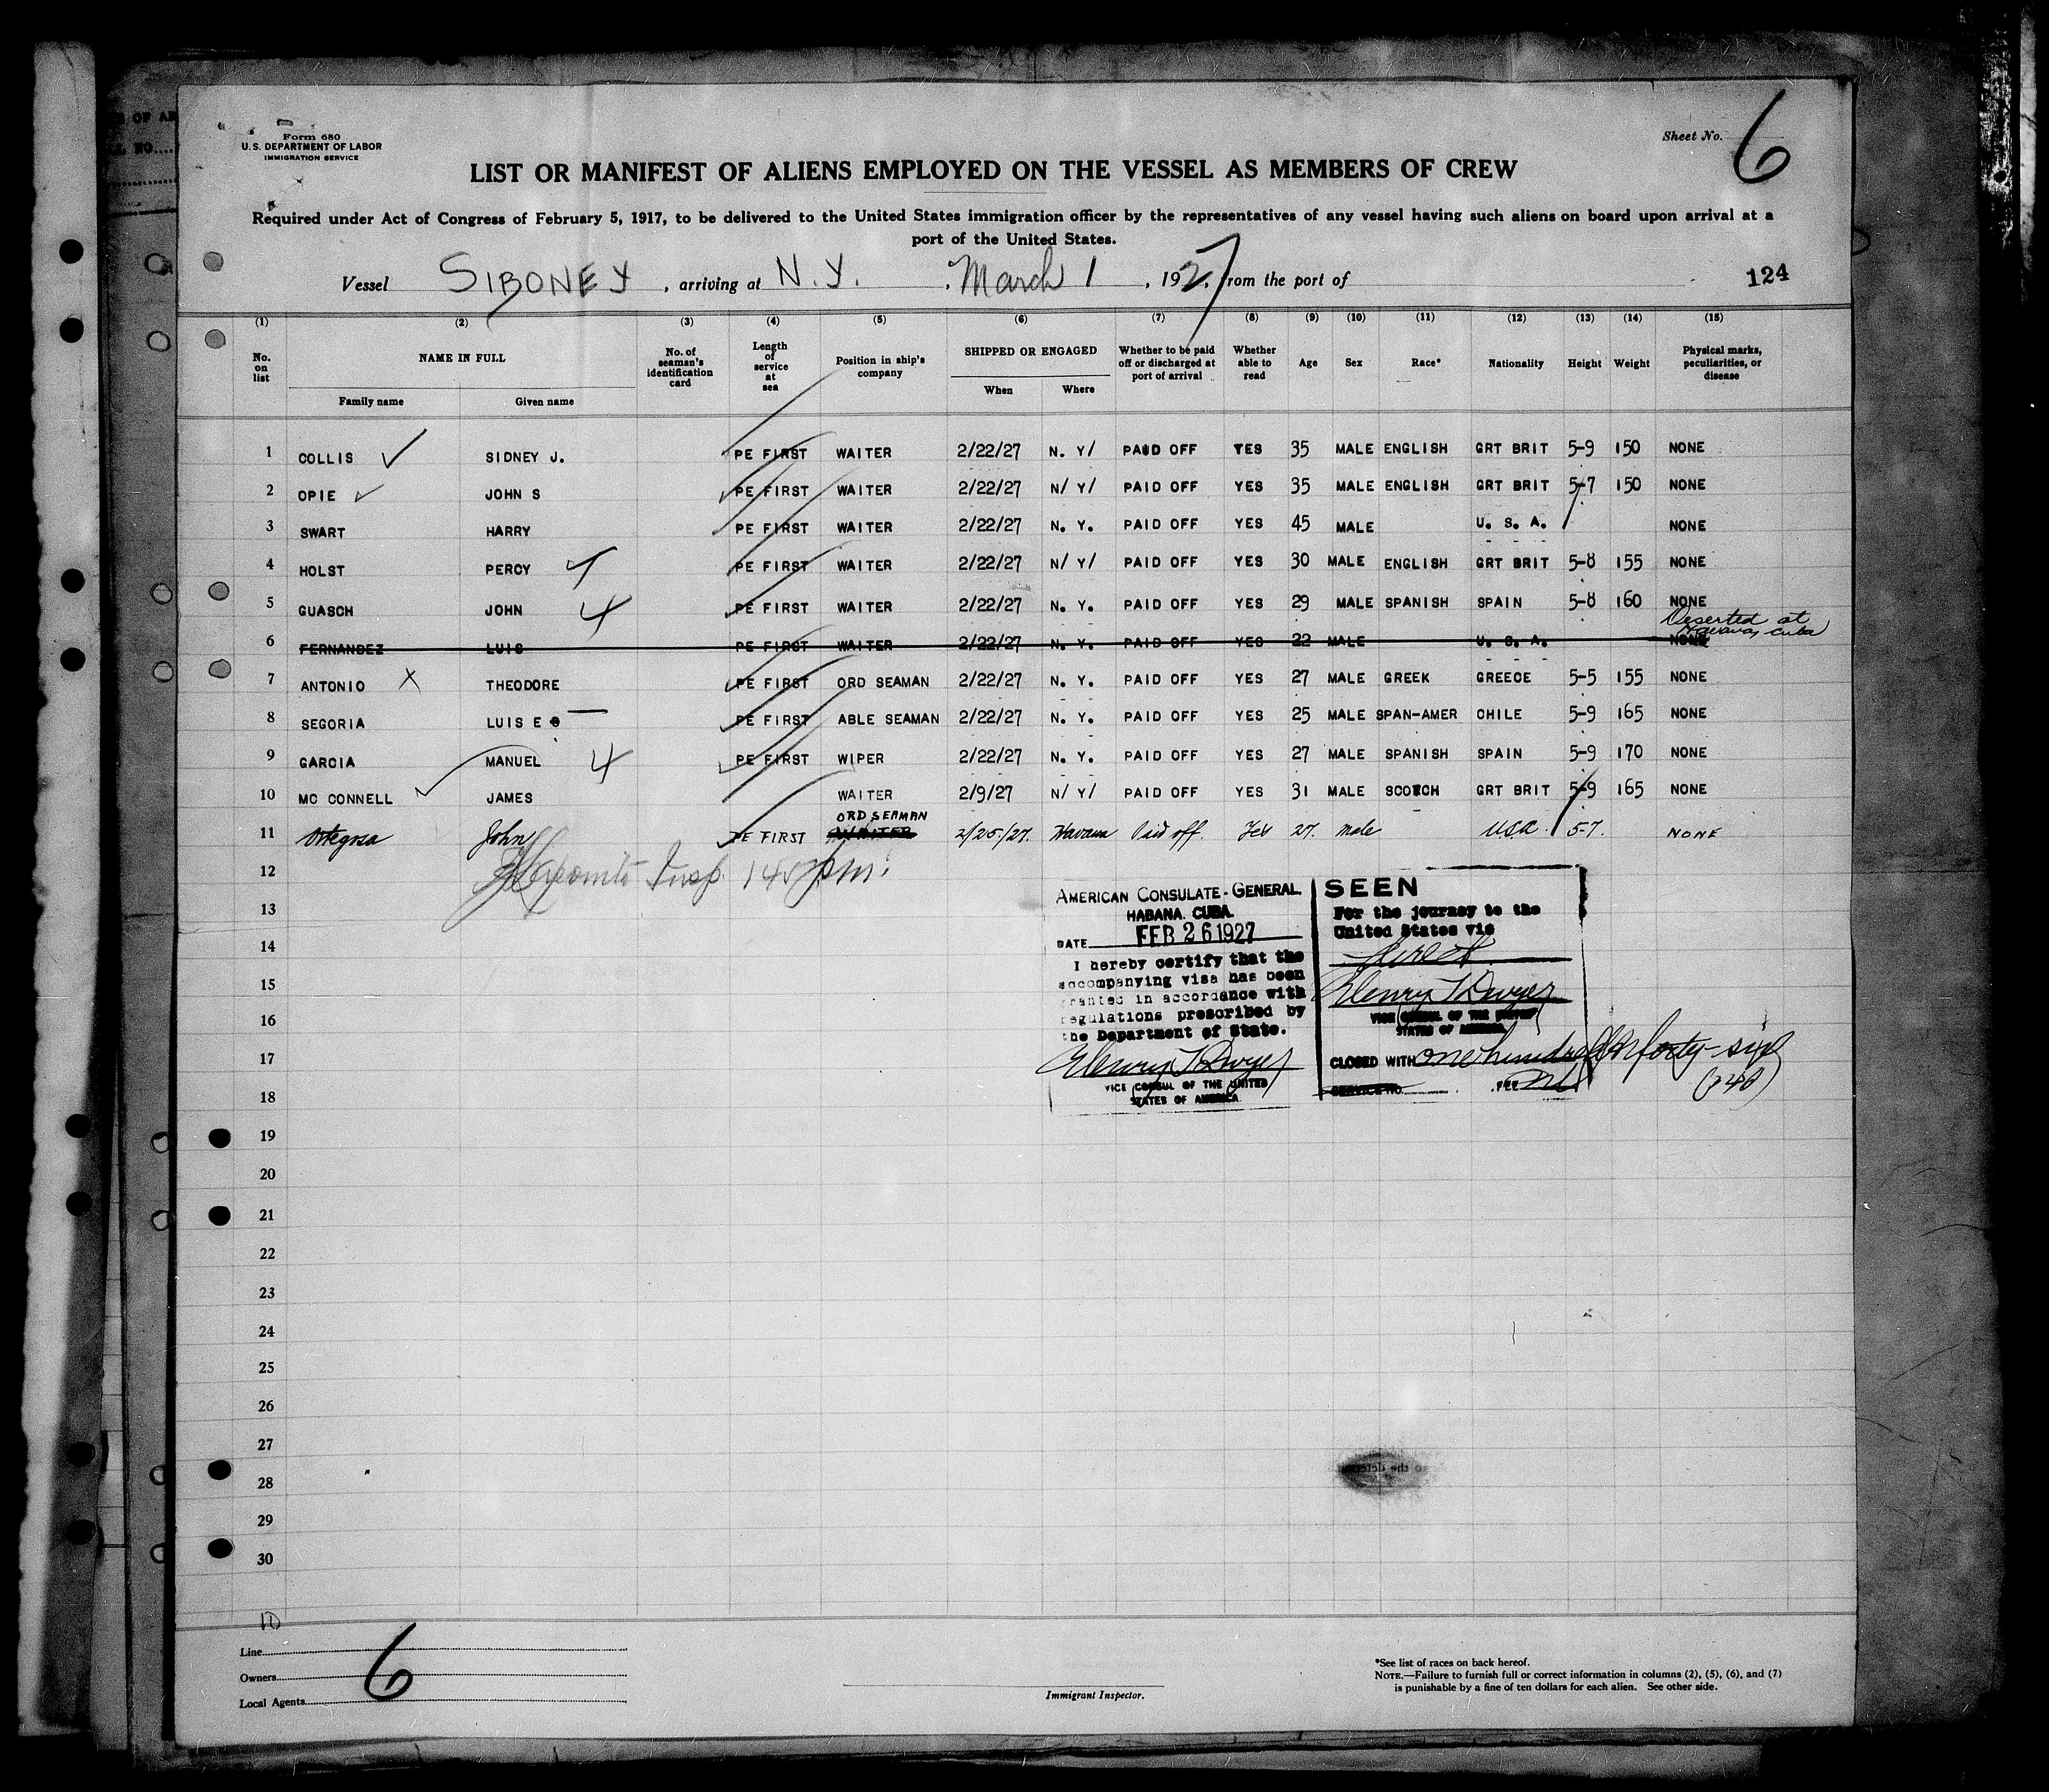 Form 680
U.S. DEPARTMENT OF LABOR
IMMIGRATION SERVICE
Sheet No. 6
LIST OR MANIFEST OF ALIENS EMPLOYED ON THE VESSEL AS MEMBERS OF CREW
Required under Act of Congress of February 5, 1917, to be delivered to the United States immigration officer by the representatives of any vessel having such aliens on board upon arrival at a
port of the United States.
Vessel SIBONEY, arriving at N.Y. , March 1, 1927, from the port of
124
(1) (2) (3) (4) (5) (6) (7) (8) (9) (10) (11) (12) (13) (14) (15)
No. on list NAME IN FULL Family name Given name No. of seaman's identification card Length of service at sea Position in ship's company SHIPPED OR ENGAGED When Where Whether to be paid off or discharged at port of arrival Whether able to read Age Sex Race* Nationality Height Weight Physical marks, peculiarities, or disease
1 COLLIS SIDNEY J. PE FIRST WAITER 2/22/27 N. Y/ PAID OFF YES 35 MALE ENGLISH GRT BRIT 5-9 150 NONE
2 OPIE JOHN S PE FIRST WAITER 2/22/27 N/ Y/ PAID OFF YES 35 MALE ENGLISH GRT BRIT 5-7 150 NONE
3 SWART HARRY PE FIRST WAITER 2/22/27 N. Y. PAID OFF YES 45 MALE U. S. A. NONE
4 HOLST PERCY PE FIRST WAITER 2/22/27 N/ Y/ PAID OFF YES 30 MALE ENGLISH GRT BRIT 5-8 155 NONE
5 GUASCH JOHN 4 PE FIRST WAITER 2/22/27 N. Y. PAID OFF YES 29 MALE SPANISH SPAIN 5-8 160 NONE
Deserted at
Havana, Cuba
6 FERNANDEZ LUIS PE FIRST WAITER 2/22/27 N. Y. PAID OFF YES 22 MALE U. S. A. NONE
7 ANTONIO X THEODORE PE FIRST ORD SEAMAN 2/22/27 N. Y. PAID OFF YES 27 MALE GREEK GREECE 5-5 155 NONE
8 SEGORIA LUIS E PE FIRST ABLE SEAMAN 2/22/27 N. Y. PAID OFF YES 25 MALE SPAN-AMER CHILE 5-9 165 NONE
9 GARCIA MANUEL 4 PE FIRST WIPER 2/22/27 N. Y. PAID OFF YES 27 MALE SPANISH SPAIN 5-9 170 NONE
10 MC CONNELL JAMES WAITER 2/9/27 N/ Y/ PAID OFF YES 31 MALE SCOTCH GRT BRIT 5-9 165 NONE
ORD SEAMAN
11 John PE FIRST WAITER 2/25/27. Havana Paid off. Yes 27. male USA. 5-7. NONE
12 Insp. 145 pm.
13
14
15
16
17
18
19
20
21
22
23
24
25
26
27
28
29
30
AMERICAN CONSULATE-GENERAL.
HABANA. CUBA.
DATE FEB 26 1927
I hereby certify that the
accompanying visa has been
granted in accordance with
regulations prescribed by
the Department of State.
Henry T Dwyer
VICE CONSUL OF THE UNITED
STATES OF AMERICA
SEEN
For the journey to the
United States via
direct
Henry T Dwyer
VICE CONSUL OF THE UNITED
STATES OF AMERICA.
CLOSED WITH one hundred forty-six
SERVICE NO. FEE
(146)
11
Line
Owners
Local Agents
6
Immigrant Inspector.
*See list of races on back hereof.
NOTE.—Failure to furnish full or correct information in columns (2), (5), (6), and (7)
is punishable by a fine of ten dollars for each alien. See other side.